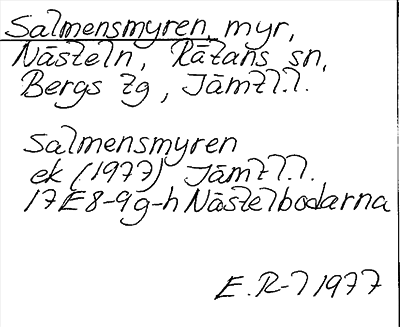 Salmensmyren, myr,
Nästeln, Rätans sn,
Bergs tg, Jämtl.l.
Salmensmyren
ek (1977) Jämtl.l.
17E8-9g-h Nästelbodarna
E. R-l 1977